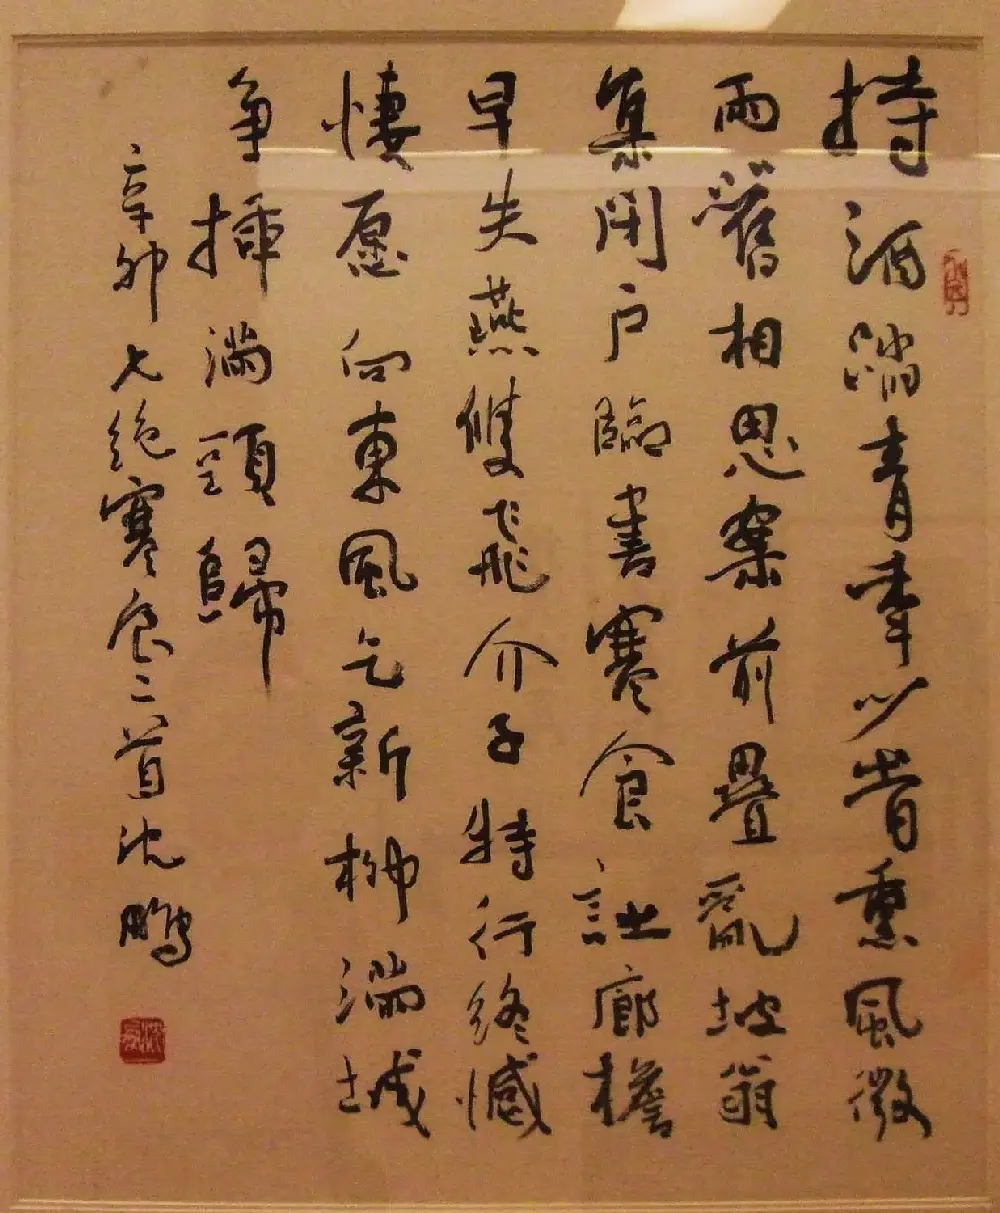 持酒踏青秊少旹熏風微
雨舊相思案前疊亂坡翁
集閉户臨書寒食詩廊檐
早失燕雙飛介子特行終憾
悽愿向東風乞新柳滿城
争插滿頭歸
辛卯七絶寒食二首沈鵬